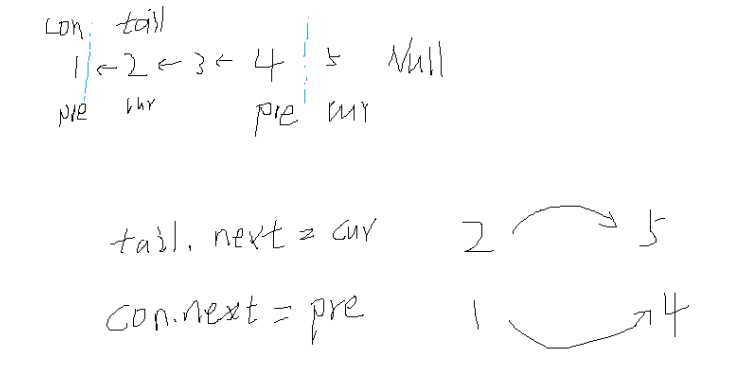 con tail
1 ← 2 ← 3 ← 4 5 Null
pre cur pre cur
tail. next = cur 2 5
con.next = pre 1 4